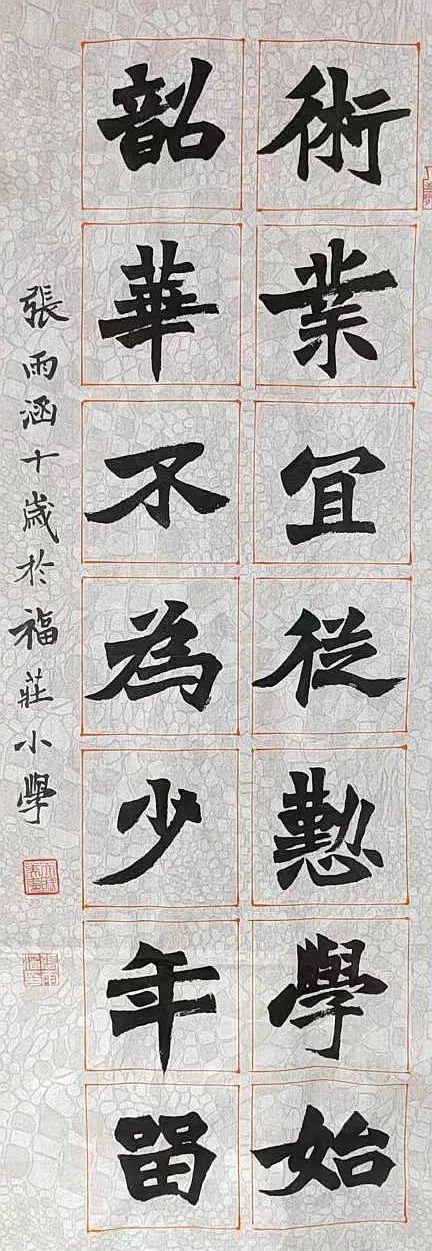 術業宜從勤學始
韶華不為少年留
張雨涵十歲於福莊小學